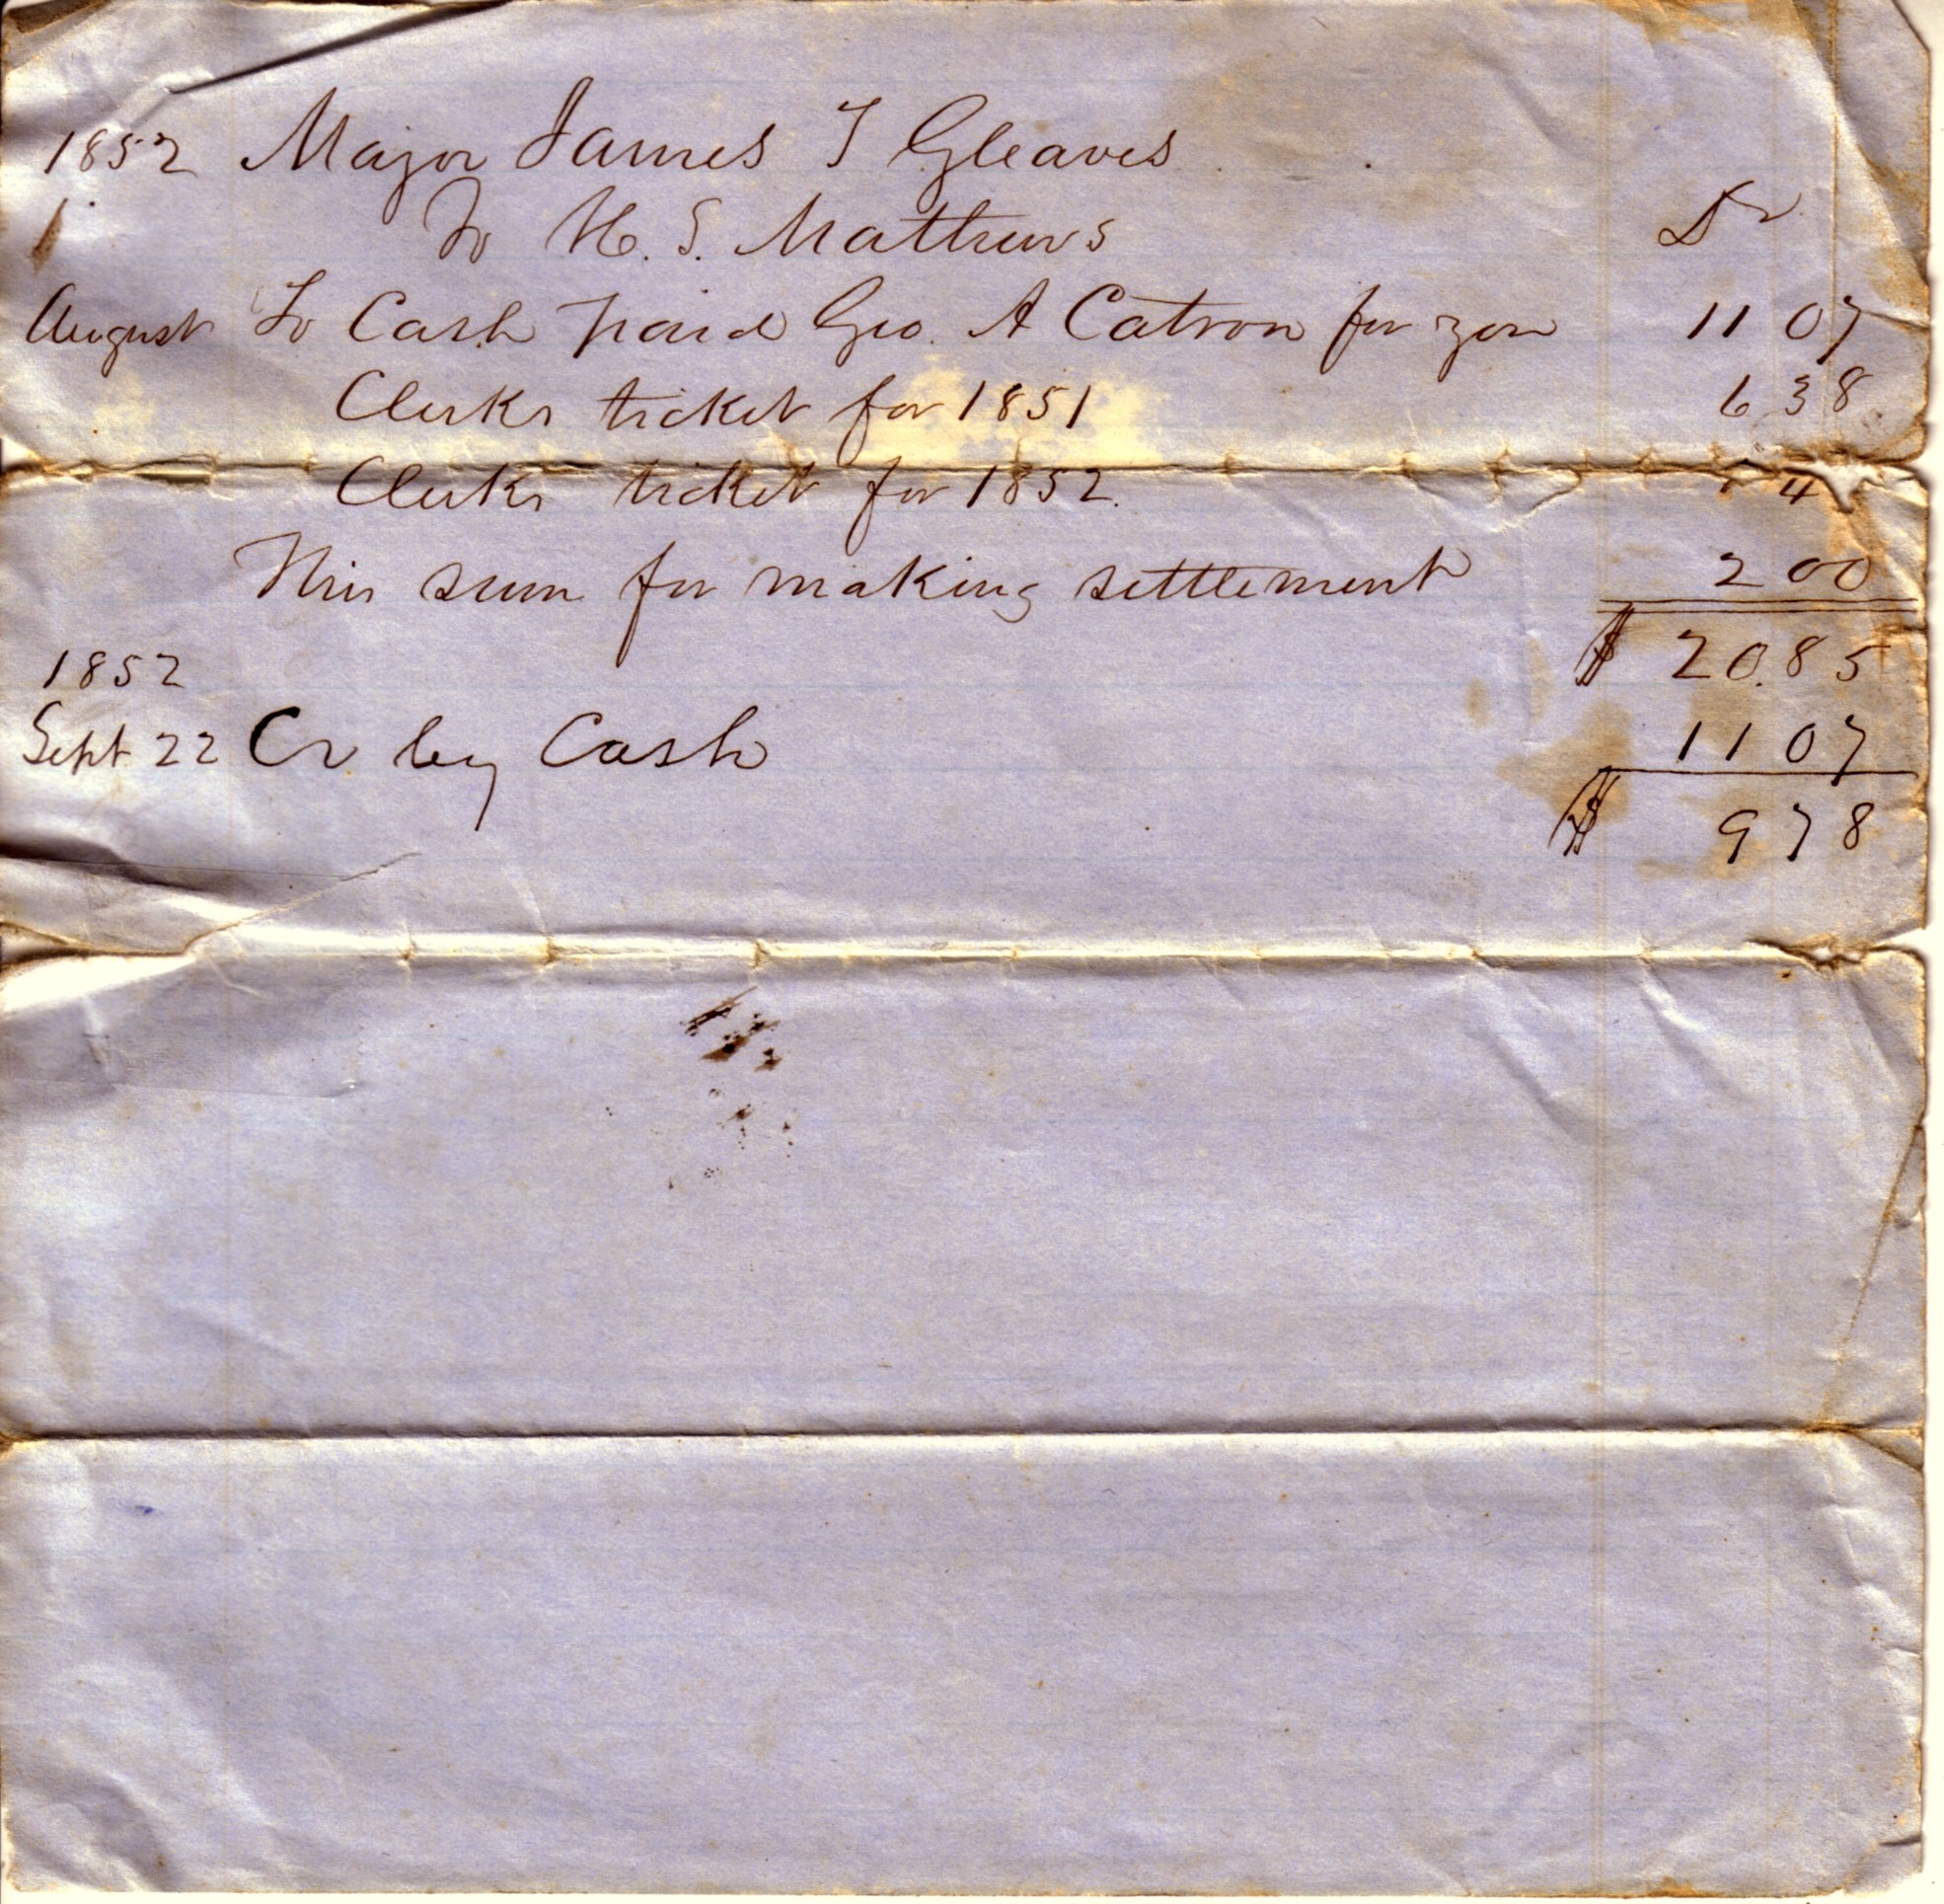 1852 Major James T Gleaves
To H. S. Mathews Dr
August To Cash paid Geo. A Catron for you 11 07
Clerks ticket for 1851 6 38
Clerks ticket for 1852. 4
This sum for making settlement 2 00
$ 20.85
1852
Sept 22 Cr by Cash 11 07
$ 9 78